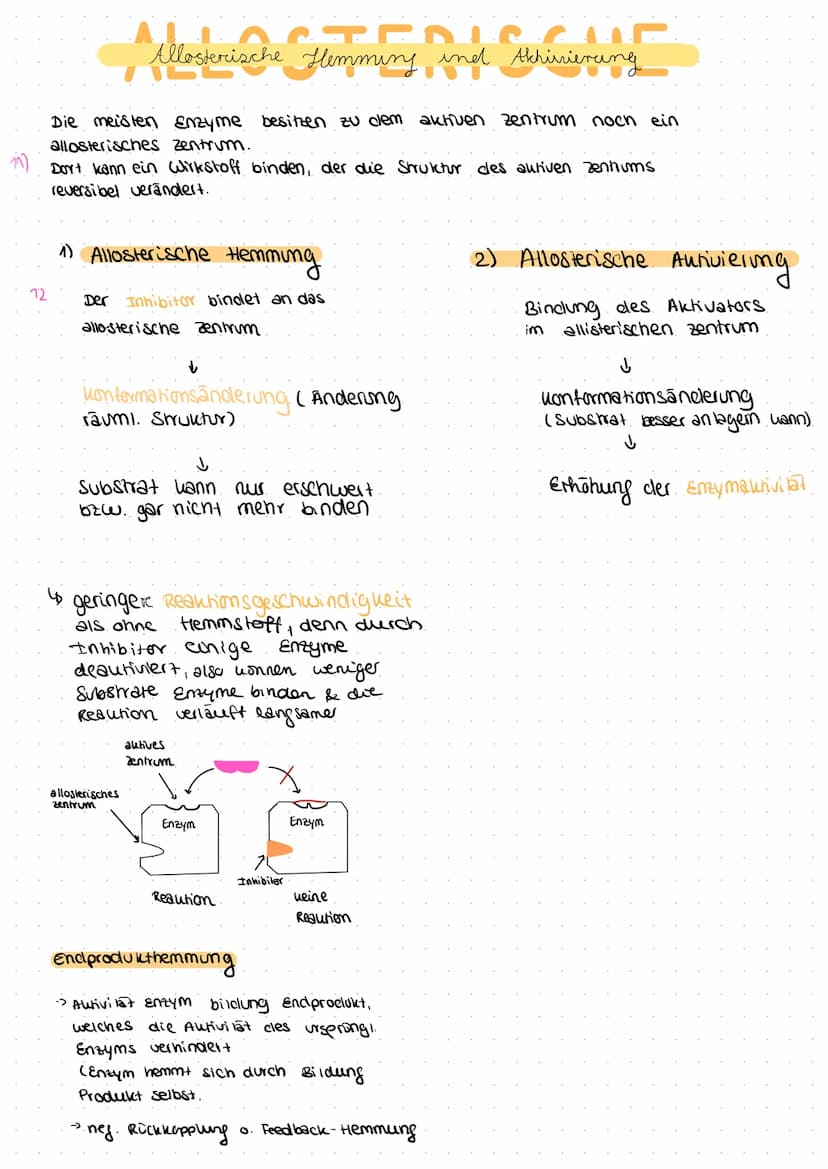 ALLOSTERISCHE
Allosterische Hemmung und Aktivierung
Die meisten Enzyme besitzen zu dem aktiven Zentrum noch ein
allosterisches Zentrum.
11)
Dort kann ein Wirkstoff binden, der die Struktur des aktiven Zentrums
reversibel verändert.
1) Allosterische Hemmung
12
Der Inhibitor bindet an das
allosterische Zentrum
↓
Konformationsänderung (Änderung
räuml. Struktur)
↓
Substrat kann nur erschwert
bzw. gar nicht mehr binden
↳ geringere Reaktionsgeschwindigkeit
als ohne Hemmstoff, denn durch
Inhibitor einige Enzyme
deaktiviert, also können weniger
Substrate Enzyme binden & die
Reaktion verläuft langsamer
2) Allosterische Aktivierung
Bindung des Aktivators
im allisterischen Zentrum
↓
Konformationsänderung
(Substrat besser anlagern kann)
↓
Erhöhung der Enzymaktivität
aktives
Zentrum
allosterisches
Zentrum
Enzym
Enzym
Inhibitor
Reaktion
keine
Reaktion
Endprodukthemmung
→ Aktivität Enzym bildung Endprodukt,
welches die Aktivität des ursprüngl.
Enzyms verhindert
(Enzym hemmt sich durch Bildung
Produkt selbst.
→ neg. Rückkopplung o. Feedback-Hemmung